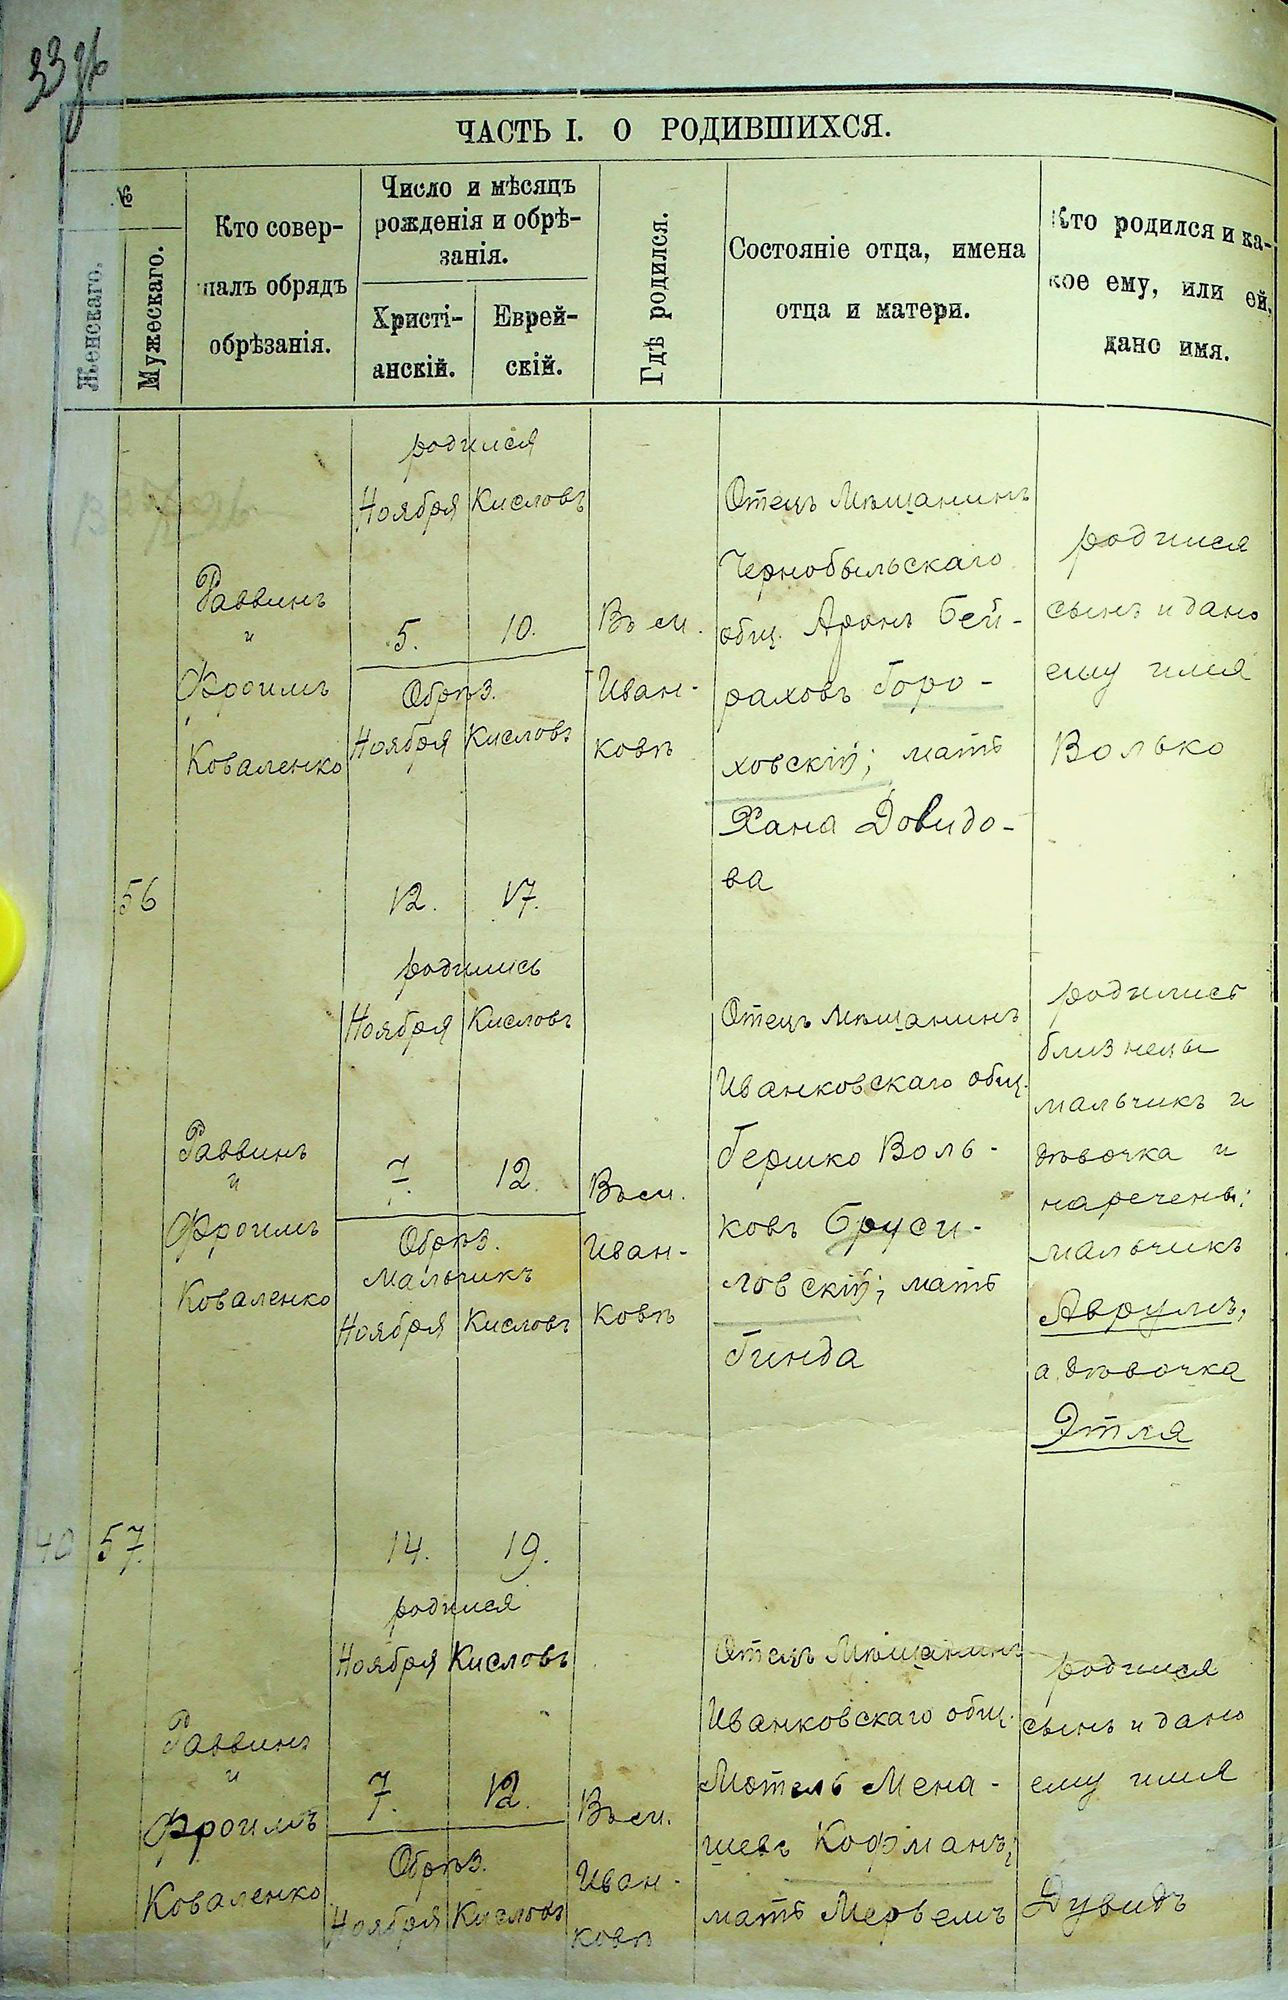 ЧАСТЬ I. О РОДИВШИХСЯ.
№
Женскаго.
Мужескаго.
Кто совер-
шалъ обрядъ
обрѣзанія.
Число и мѣсяцъ
рожденія и обрѣ-
занія.
Христі-
анскій.
Еврей-
скій.
Гдѣ родился.
Состояніе отца, имена
отца и матери.
Кто родился и ка-
кое ему, или ей,
дано имя.
56
Раввинъ
и
Фроимъ
Коваленко
родился
Ноября Кисловъ
5. 10.
Обрѣз.
Ноября Кисловъ
12. 17.
Въ м.
Иван-
ковѣ
Отецъ Мѣщанинъ
Чернобыльскаго
общ. Аронъ Бей-
раховъ Горо-
ховскій; мать
Хана Довидо-
ва
родился
сынъ и дано
ему имя
Волько
40 57.
Раввинъ
и
Фроимъ
Коваленко
родились
Ноября Кисловъ
7. 12.
Обрѣз.
Мальчикъ
Ноября Кисловъ
14. 19.
Въ м.
Иван-
ковѣ
Отецъ Мѣщанинъ
Иванковскаго общ.
Гершко Воль-
ковъ Бруси-
ловскій; мать
Гинда
родились
близнецы
мальчикъ и
дѣвочка и
наречены:
мальчикъ
Аврумъ,
а дѣвочка
Этля
Раввинъ
и
Фроимъ
Коваленко
родился
Ноября Кисловъ
7. 12.
Обрѣз.
Ноября Кисловъ
Въ м.
Иван-
ковѣ
Отецъ Мѣщанинъ
Иванковскаго общ.
Мотель Мена-
шевъ Кофманъ;
мать Мерьемъ
родился
сынъ и дано
ему имя
Дувидъ